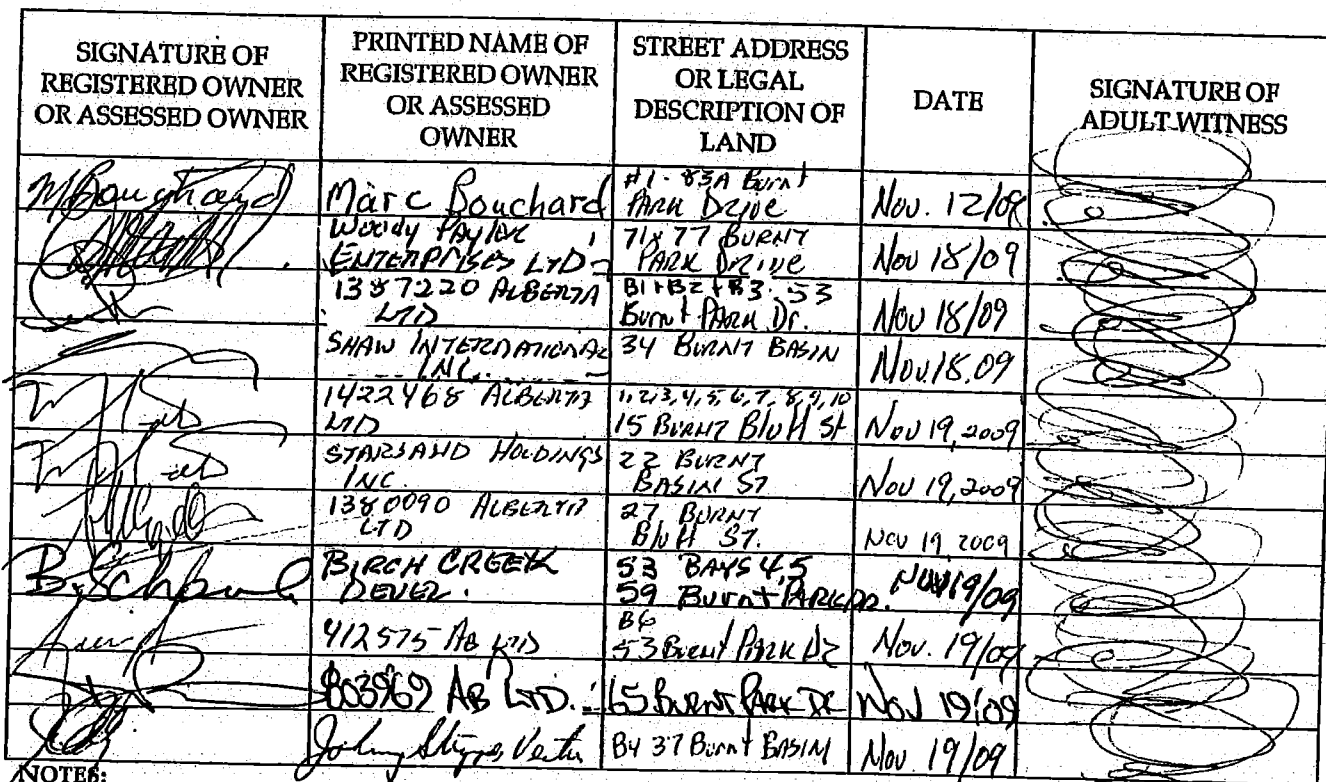 SIGNATURE OF
REGISTERED OWNER
OR ASSESSED OWNER
PRINTED NAME OF
REGISTERED OWNER
OR ASSESSED
OWNER
STREET ADDRESS
OR LEGAL
DESCRIPTION OF
LAND
DATE
SIGNATURE OF
ADULT WITNESS
M Bouchard
Marc Bouchard
#1 - 83A Burnt
PARK DRIVE
Nov. 12/09
Woody PAYLOR
ENTERPRISES LTD
71 & 77 BURNT
PARK DRIVE
Nov 18/09
1387220 ALBERTA
LTD
B1+B2+B3. 53
Burnt PARK Dr.
Nov 18/09
SHAW INTERNATIONAL
INC.
34 BURNT BASIN
Nov.18.09
1422468 ALBERTA
LTD
1,2,3,4,5,6,7,8,9,10
15 BURNT Bluff St
Nov 19, 2009
STARSAND HOLDINGS
INC.
22 BURNT
BASIN ST
Nov 19, 2009
1380090 ALBERTA
LTD
27 BURNT
Bluff ST.
Nov 19 2009
BIRCH CREEK
DEVEL.
53 BAYS 4,5
59 Burnt PARK DR.
NOV 19/09
412575 AB LTD
B6
53 Burnt PARK DR
Nov. 19/09
803969 AB LTD.
65 BURNT PARK DR
Nov 19/09
Johnny
B4 37 Burnt BASIN
Nov. 19/09
NOTES: